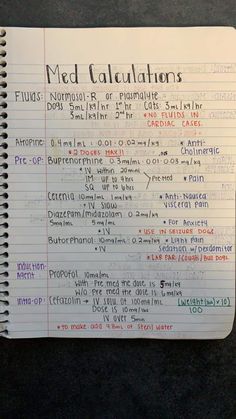 Med Calculations
Fluids: Normosol-R or Plasmalyte
Dogs 5mL/kg/hr 1st hr Cats: 3mL/kg/hr
3mL/kg/hr 2nd hr *NO FLUIDS IN
CARDIAC CASES.
Atropine: 0.4mg/mL : 0.01-0.02mg/kg *Anti-
*2 DOSES MAX!! Cholinergic
Pre-OP: Buprenorphine 0.3mg/mL 0.01-0.03mg/kg
*IV within 20min
IM: up to 4hrs Pre-med *Pain
SQ up to 6hrs
Cerenia 10mg/mL 1mg/kg *Anti-Nausea
*IV Slow Visceral Pain
Diazepam/Midazolam 0.2mg/kg
5mg/mL 5mg/mL *For Anxiety
*IV *USE IN SEIZURE DOGS
Butorphanol: 10mg/mL 0.2mg/kg *Light Pain
*IV Sedation w/Dexdomitor
*LAR PAR/COUGH/BULL DOGS
Induction
Agent Propofol 10mg/mL
With Pre-med the dose is 5mg/kg
w/o Pre-med the dose is 6mg/kg
Intra-OP: Cefazolin → IV Solu. at 100mg/mL (weight(kg) × 10)
Dose is 10mg/lb 100
IV over 5min
*to make add 9.8mL of steril water